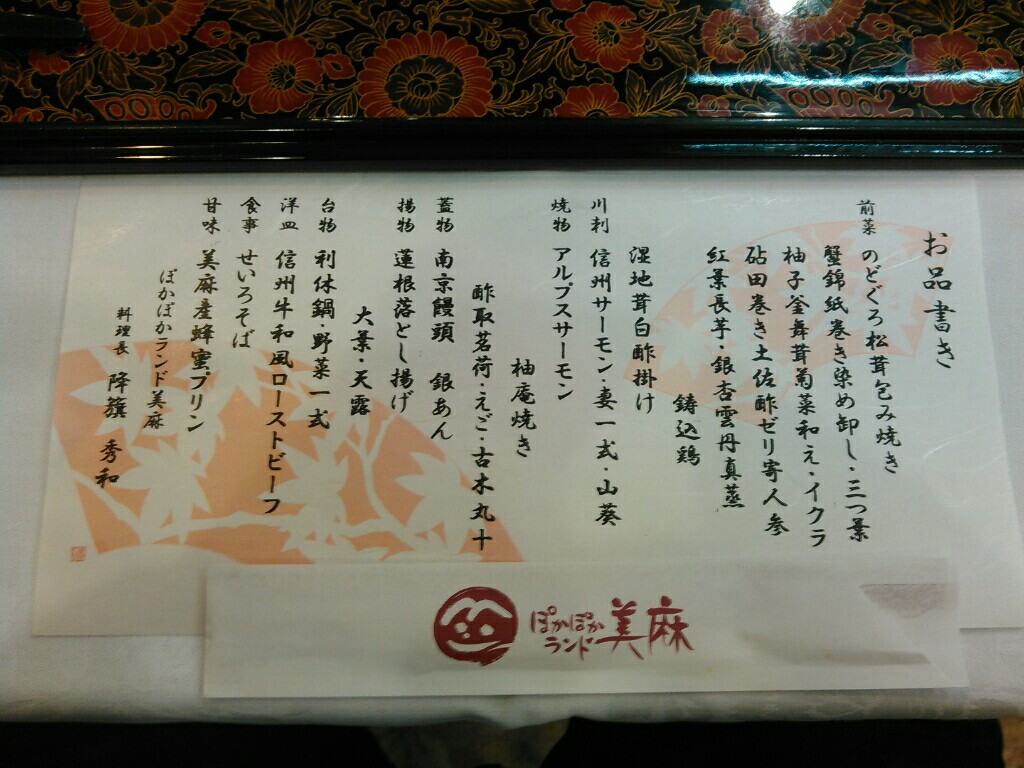 お品書き
前菜 のどぐろ松茸包み焼き
蟹錦紙巻き染め卸し・三つ葉
柚子釜舞茸菊菜和え・イクラ
砧田巻き土佐酢ゼリ寄人参
紅葉長芋・銀杏雲丹真蒸
鋳込鶏
湿地茸白酢掛け
川刺 信州サーモン・妻一式・山葵
焼物 アルプスサーモン
柚庵焼き
酢取茗荷・えご・古木丸十
蓋物 南京饅頭 銀あん
揚物 蓮根落とし揚げ
大葉・天露
台物 利休鍋・野菜一式
洋皿 信州牛和風ローストビーフ
食事 せいろそば
甘味 美麻産蜂蜜プリン
ぽかぽかランド美麻
料理長 降籏 秀和
ぽかぽか
ランド美麻